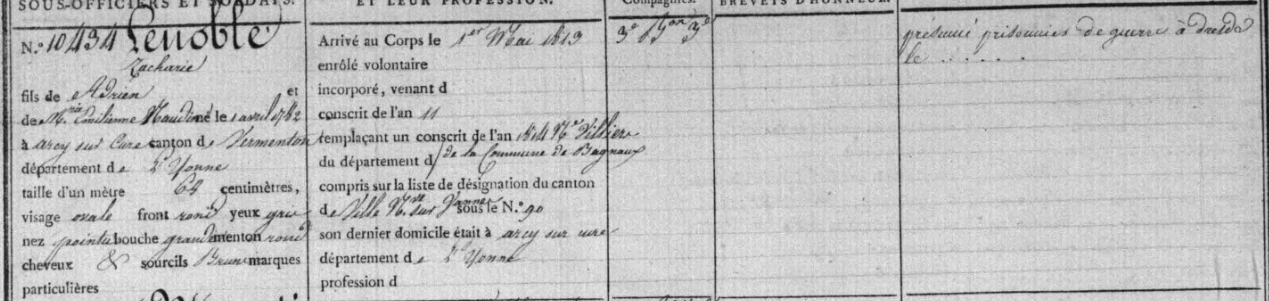 SOUS-OFFICIERS ET SOLDATS.
N.° 10434 Lenoble
Zacharie
fils de Adrien et
de M.rie Emilianne Naudin né le 1 avril 1782
à arcy sur Cure canton de Vermenton
département de l'Yonne
taille d'un mètre 64 centimètres,
visage ovale front rond yeux gris
nez pointu bouche grande menton rond
cheveux & sourcils Bruns marques
particulières
ET LEUR PROFESSION.
Arrivé au Corps le 1er Mai 1813
enrôlé volontaire
incorporé, venant d
conscrit de l'an 11
remplaçant un conscrit de l'an 1814 N.é Villiers
du département d de la Commune de Bagnaux
compris sur la liste de désignation du canton
de Ville N.ve sur Yonne sous le N.° 90
son dernier domicile était à arcy sur cure
département de l'Yonne
profession d
Compagnies.
3e Bon 3e
BREVETS D'HONNEUR.
présumé prisonnier de guerre à dresde
le . . . . . .